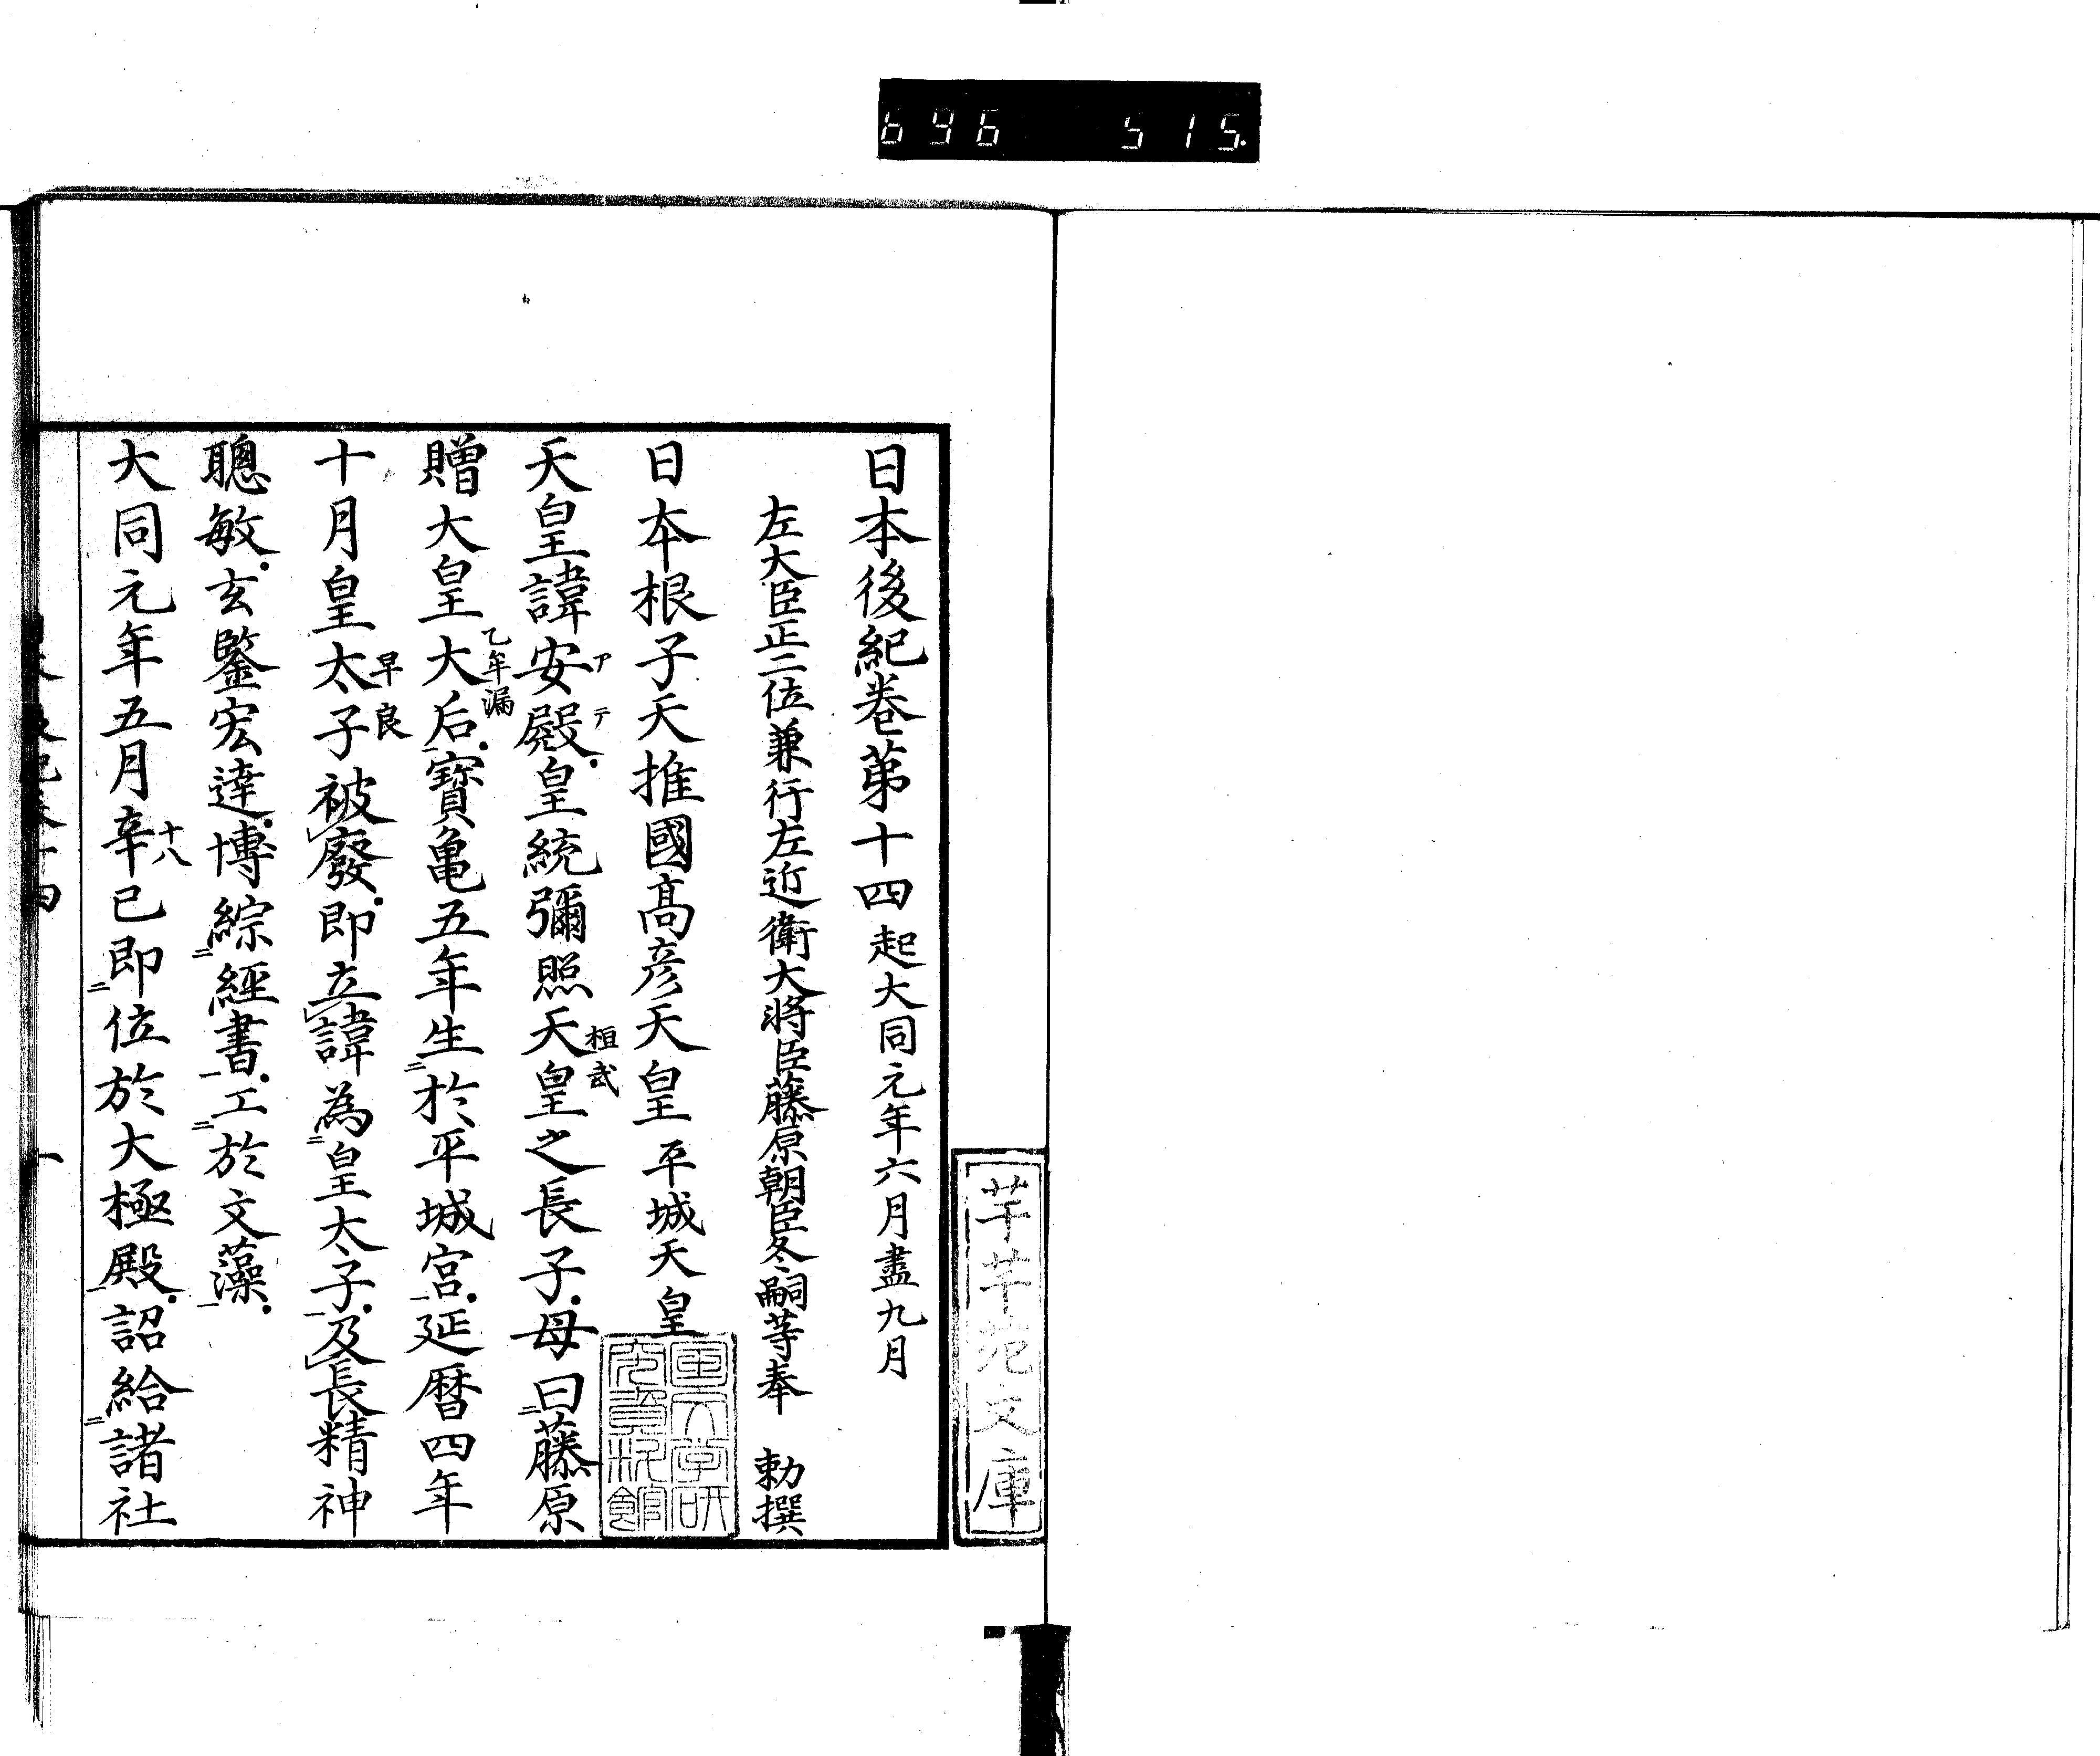 696 515.
日本後紀卷第十四 起大同元年六月盡九月
左大臣正二位兼行左近衛大將臣藤原朝臣冬嗣等奉 勅撰
日本根子天推國高彥天皇 平城天皇
天皇諱安殿皇統彌照天皇之長子母曰藤原
アテ
桓武
贈大皇大后寶龜五年生於平城宮延曆四年
乙牟漏
十月皇太子被廢即立諱為皇太子及長精神
早良
聰敏玄鑒宏達博綜經書工於文藻
大同元年五月辛巳即位於大極殿詔給諸社
十八
芋芋苑文庫
国文学研
究資料館